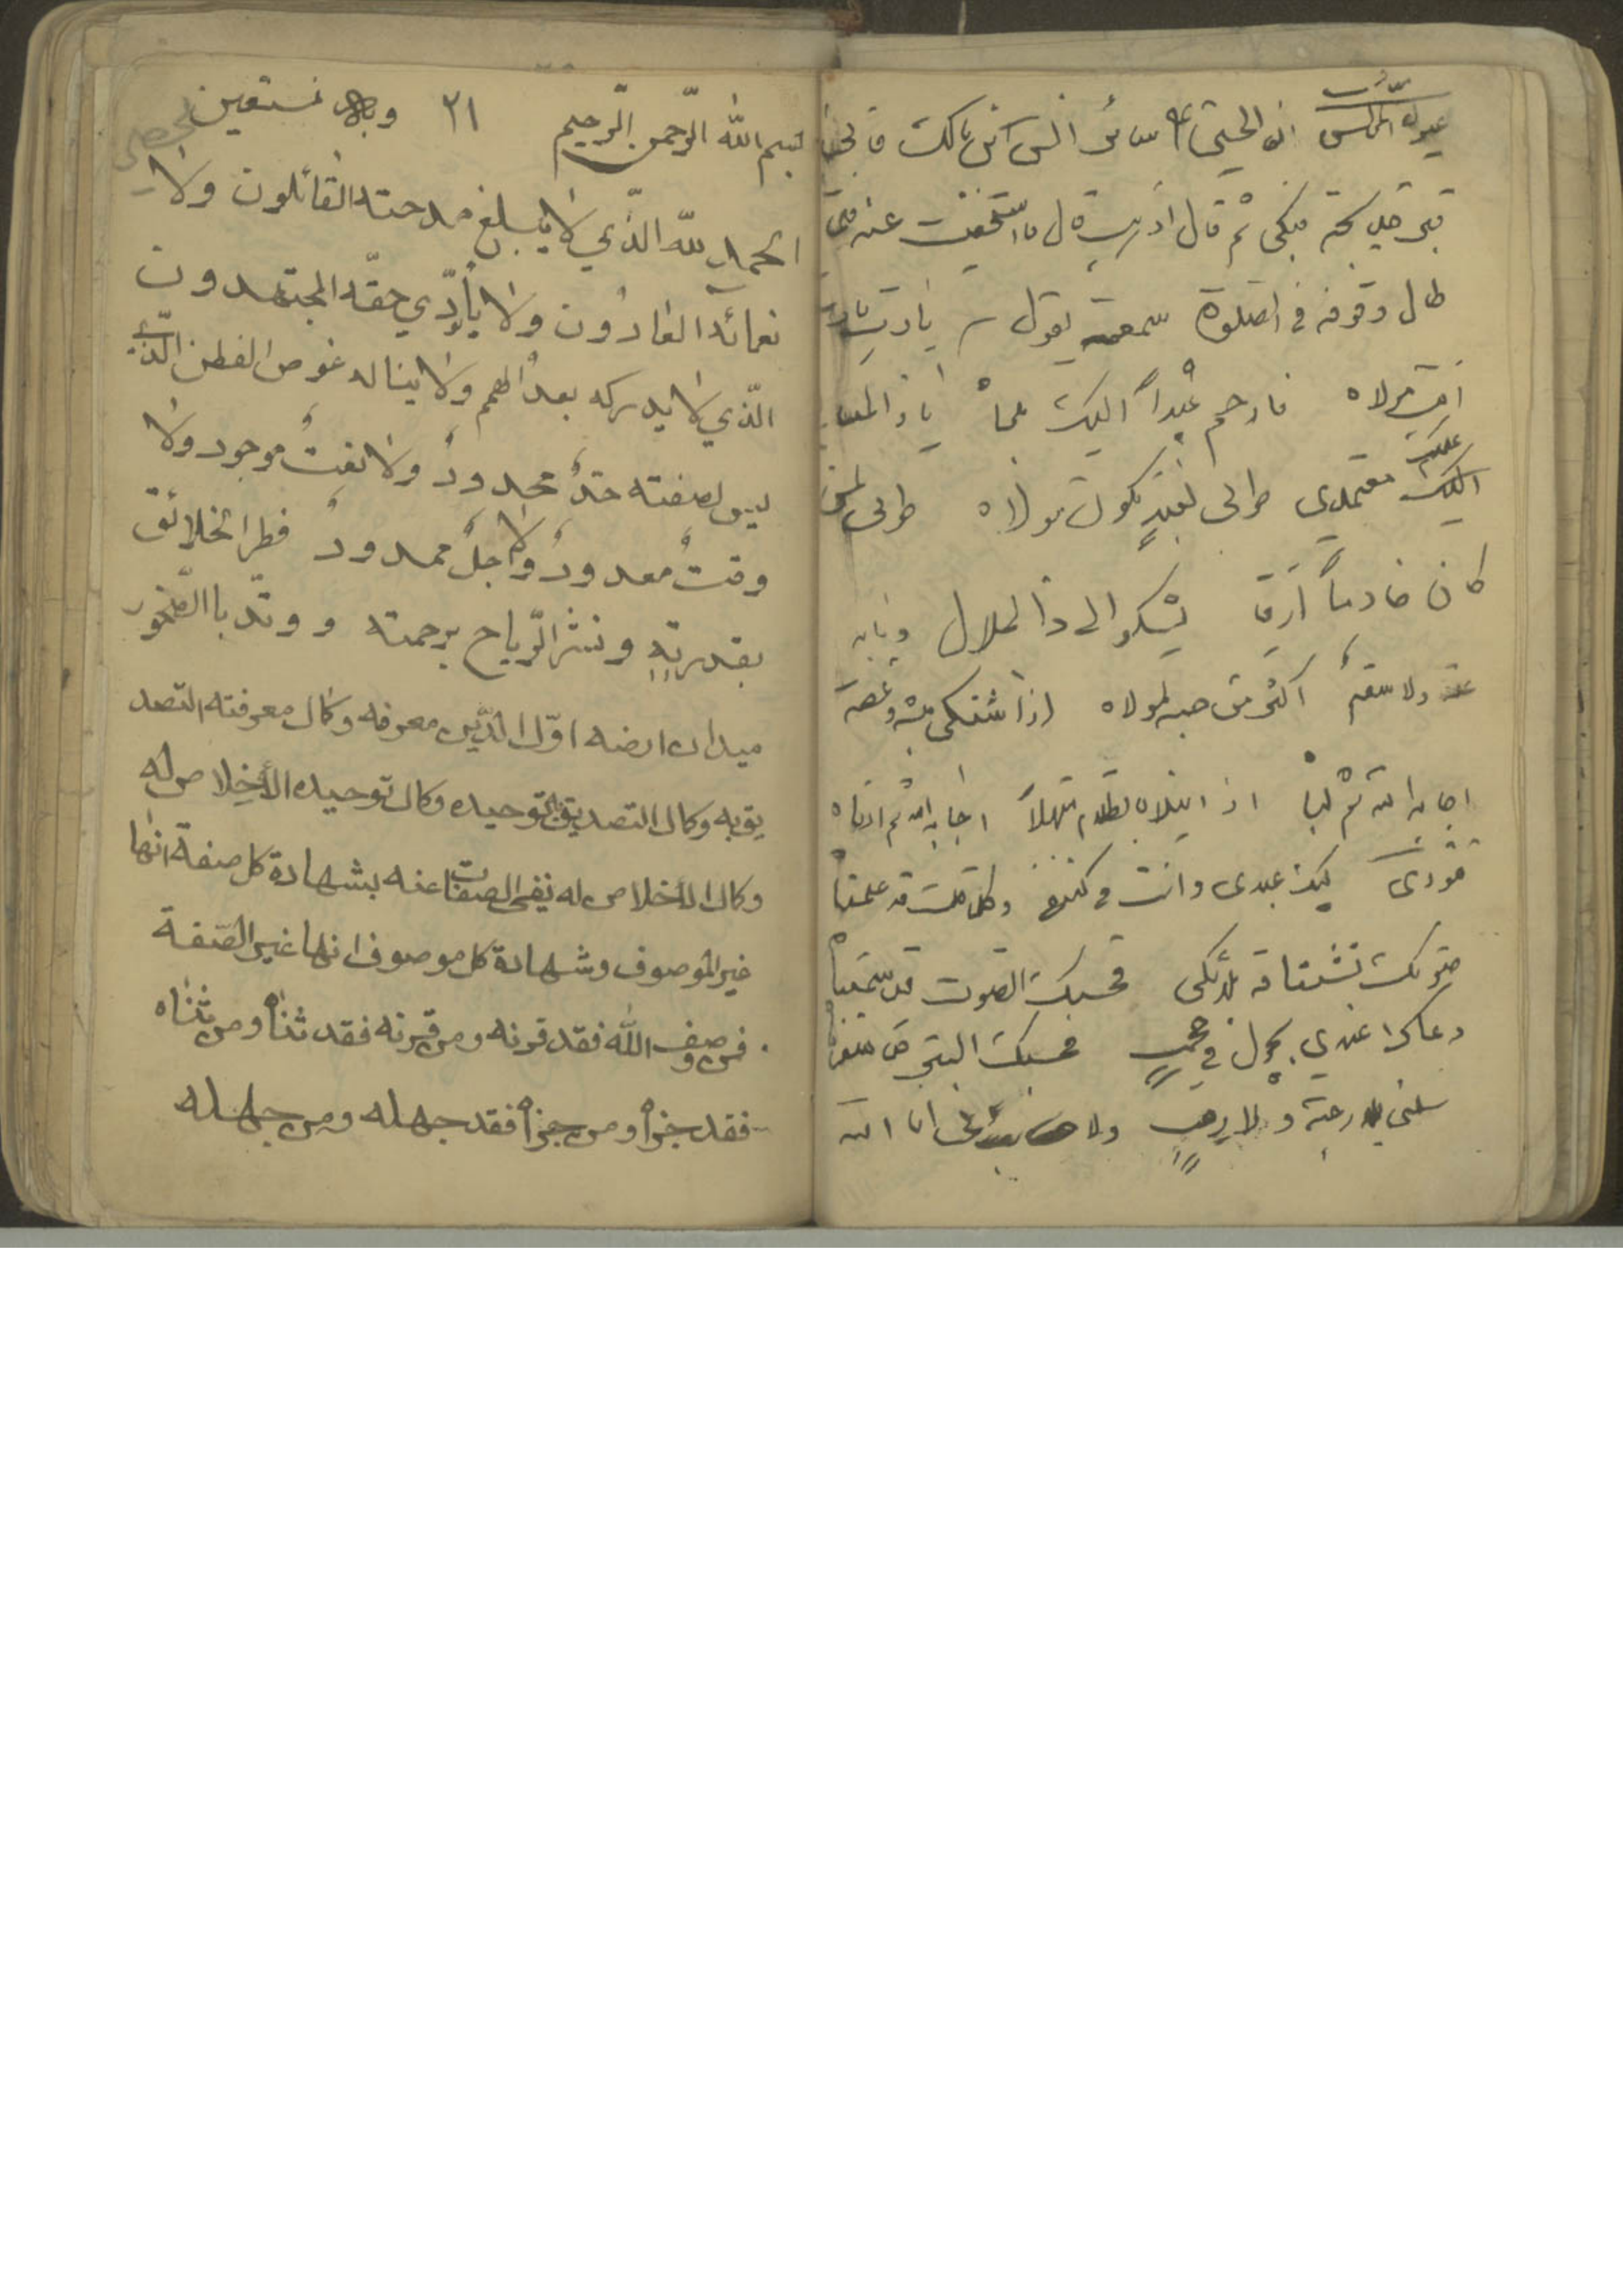 عيون المجالس ان الحسين ساير انس بن مالك فاتى
قبر خديجة فبكى ثم قال اذهب قال فاستخفيت عنه فلما
طال وقوفه فى الصلوة سمعته يقول يا رب يا رب
انت مولاه فارحم عبداً اليك ملجاه يا ذا المعالى
عليك معتمدي طوبى لعبد تكون مولاه طوبى لمن
كان خادماً ارقا يشكو الى ذا الجلال وما به
علة ولا سقم اكثر من حبه لمولاه اذا اشتكى بثه وغصته
اجابه الله ثم لباه اذا ابتلاه بالظلام مبتهلاً اجابه الله ثم ادناه
فنودى لبيك عبدى وانت فى كنفى وكلما قلت قد علمناه
صوتك تشتاقه ملائكتى فحسبك الصوت قد سمعناه
دعاك عندي يجول في حجب فحسبك الستر قد سفرناه
سلنى بلا رغبة ولا رهب ولا حساب انى انا الله
بسم الله الرّحمن الرّحيم ٢١ وبه نستعين
الحمد لله الذّي لا يبلغ مدحته القائلون ولا يحصى
نعمائه العادّون ولا يأدّي حقّه المجتهدون
الّذي لا يدركه بعدُ الهمم ولا يناله غوص الفطن الّذي
ليس لصفته حدٌ محدودٌ ولا نعتٌ موجود ولا
وقتٌ معدودٌ ولا اجلٌ ممدودٌ فطر الخلائق
بقدرته ونشر الرّياح برحمته و وتّد باالصّخور
ميدان ارضه اوّل الدّين معرفه وكمال معرفته التصد
يق به وكمال التصديق به توحيده وكمال توحيده الأخلاص له
وكمال الأخلاص له نفى الصفات عنه بشهادة كل صفة انها
غير الموصوف وشهادة كل موصوف انها غير الصّفة
فمن وصف الله فقد قرنه ومن قرنه فقد ثنّاه ومن ثنّاه
فقد جزأه ومن جزأه فقد جهله ومن جهله